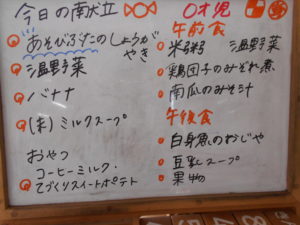 今日の献立
あそびぶたのしょうが
やき
温野菜
バナナ
(未)ミルクスープ
おやつ
コーヒーミルク・
てづくりスイートポテト
0才児
午前食
米粥 温野菜
鶏団子のみぞれ煮
南瓜のみそ汁
午後食
白身魚のおじや
豆乳スープ
果物